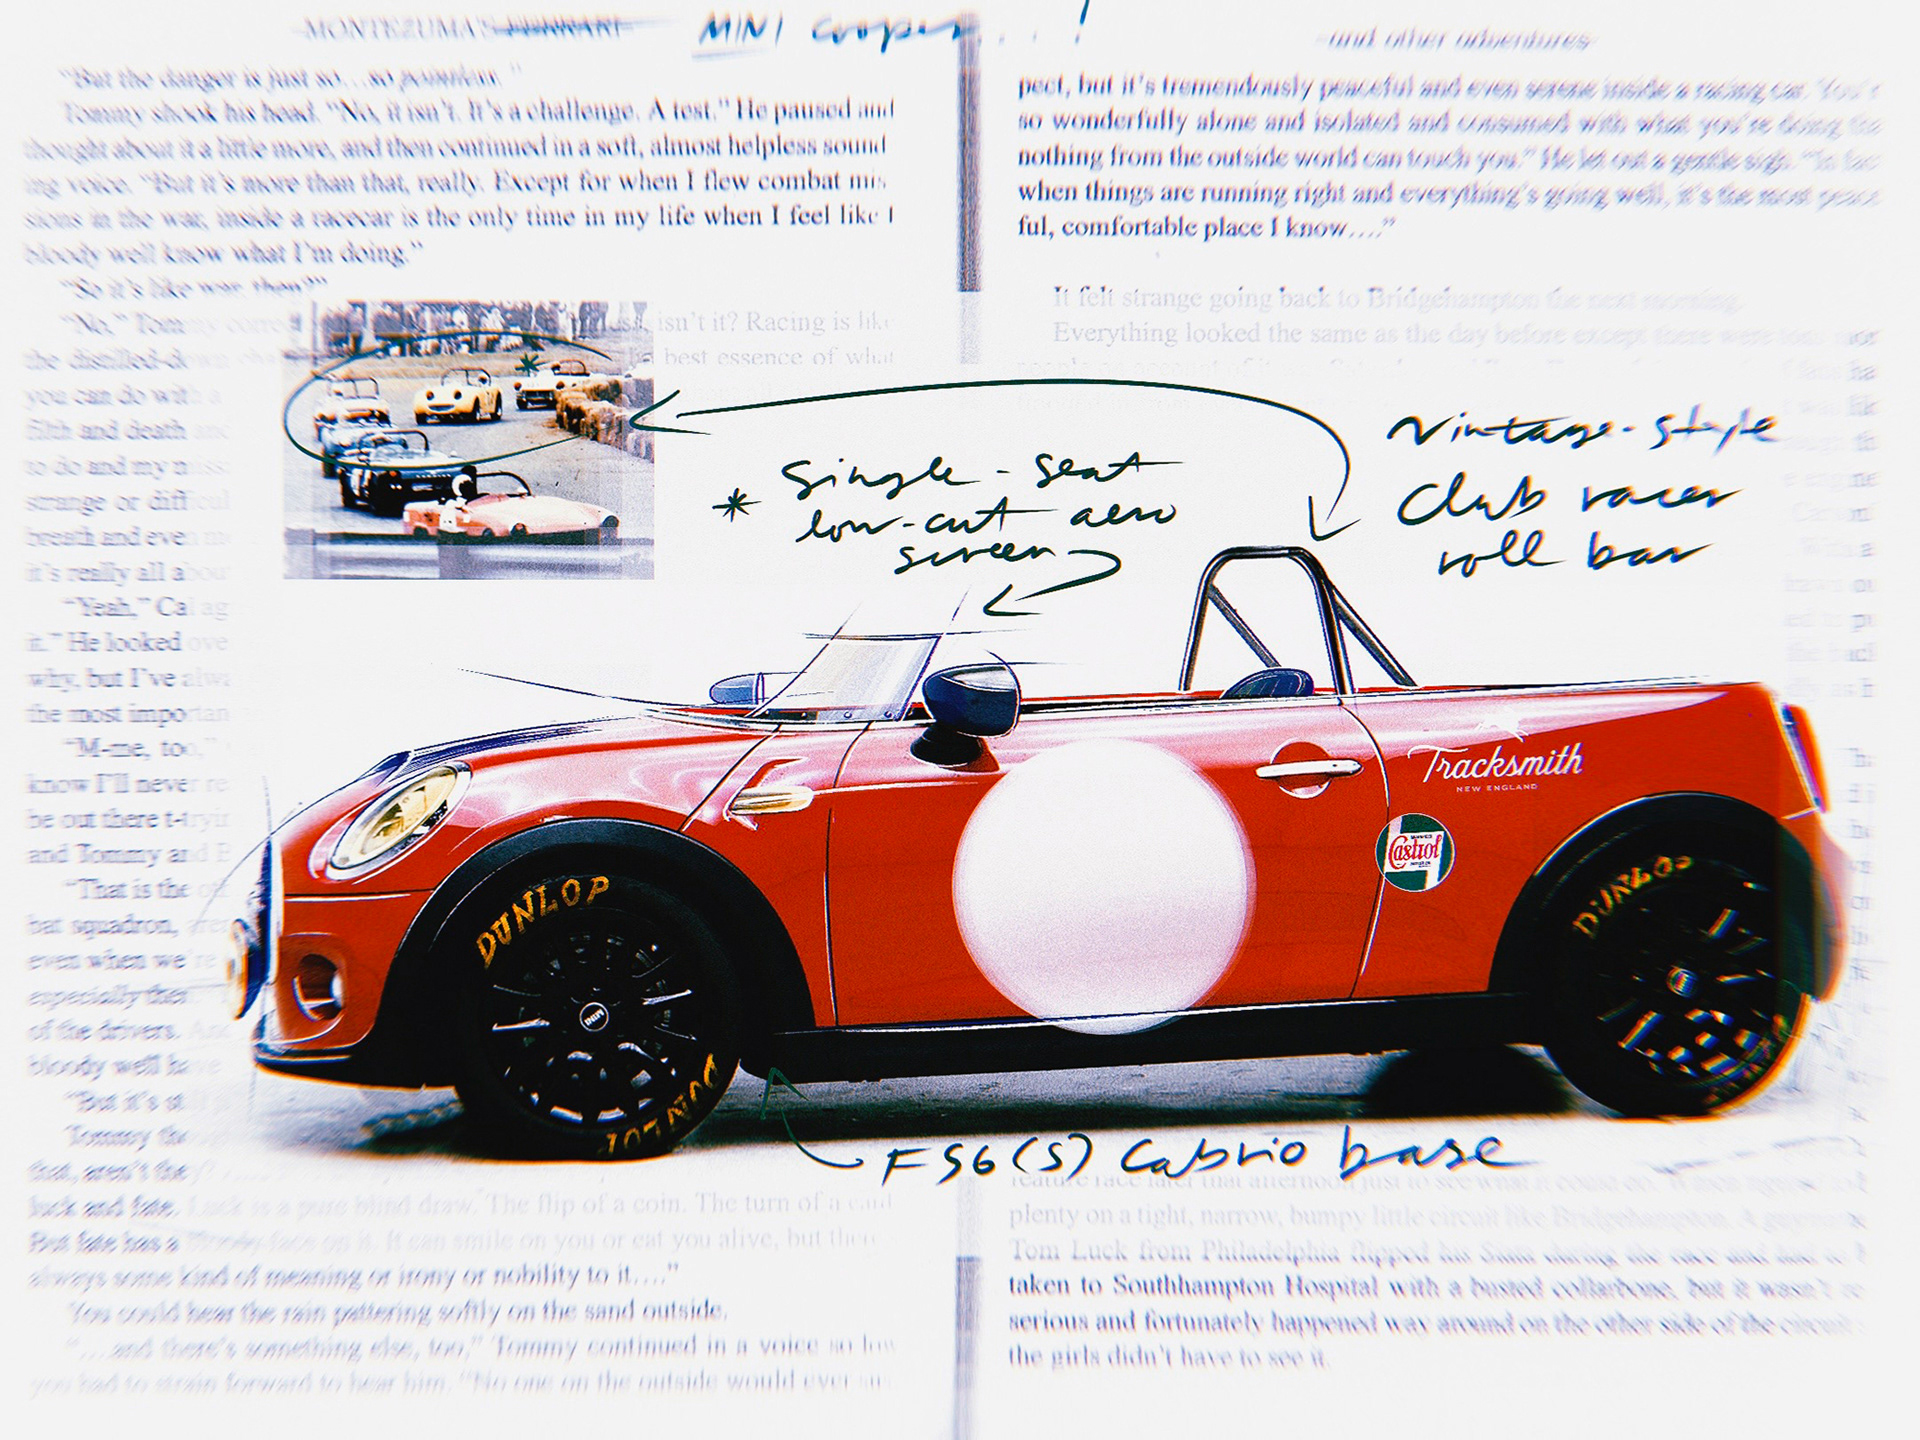 MONTEZUMA'S FERRARI
MINI Cooper...!
-and other adventures-
"But the danger is just so…so pointless."
Tommy shook his head. "No, it isn't. It's a challenge. A test." He paused and
thought about it a little more, and then continued in a soft, almost helpless sound
ing voice. "But it's more than that, really. Except for when I flew combat mis
sions in the war, inside a racecar is the only time in my life when I feel like I
bloody well know what I'm doing."
"So it's like war, then?"
"No," Tommy corre isn't it? Racing is like
the distilled-down best essence of what
you can do with a
filth and death and
to do and my
strange or difficul
breath and even
it's really all abou
"Yeah," Cal ag
it." He looked ove
why, but I've alwa
the most importan
"M-me, too,"
know I'll never re
be out there t-tryin
and Tommy and B
"That is the
bat squadron,
even when we're
especially then
of the drivers. And
bloody well have
"But it's st
Tommy tho
that, aren't they?
luck and fate. Luck is a pure blind draw. The flip of a coin. The turn of a card
But fate has a bloody face on it. It can smile on you or eat you alive, but there
always some kind of meaning or irony or nobility to it…."
You could hear the rain pattering softly on the sand outside.
"…and there's something else, too," Tommy continued in a voice so low
you had to strain forward to hear him. "No one on the outside would ever
pect, but it's tremendously peaceful and even serene inside a racing car. You're
so wonderfully alone and isolated and consumed with what you're doing tha
nothing from the outside world can touch you." He let out a gentle sigh. "In fac
when things are running right and everything's going well, it's the most peace
ful, comfortable place I know…."
It felt strange going back to Bridgehampton the next morning.
Everything looked the same as the day before except there were
* single-seat
low-cut aero
screen
vintage-style
club racer
roll bar
Tracksmith
NEW ENGLAND
Castrol
DUNLOP
DUNLOP
DUNLOP
MINI
F56(S) Cabrio base
feature race later that afternoon just to see what it could do.
plenty on a tight, narrow, bumpy little circuit like Bridgehampton. A guy
Tom Luck from Philadelphia flipped his Siata during the race and had to b
taken to Southhampton Hospital with a busted collarbone, but it wasn't
serious and fortunately happened way around on the other side of the circuit
the girls didn't have to see it.